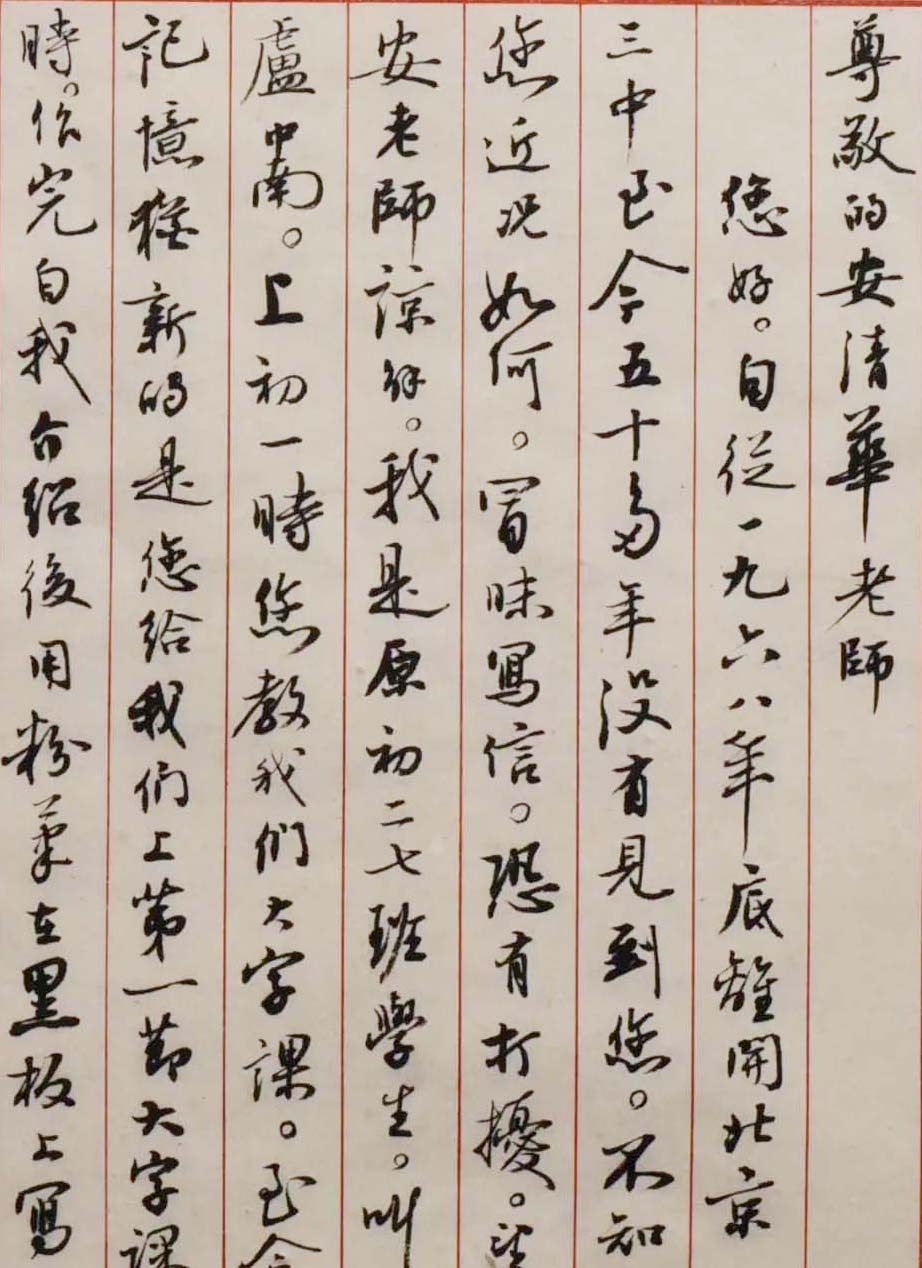 尊敬的安清華老師
您好。自從一九六八年底離開北京
三中至今五十多年没有見到您。不知
您近况如何。冒昧寫信。恐有打擾。望
安老師諒解。我是原初二七班學生。叫
盧中南。上初一時您教我们大字課。至今
記憶猶新的是您给我们上第一節大字課
時。你完自我介紹後用粉筆在黑板上寫